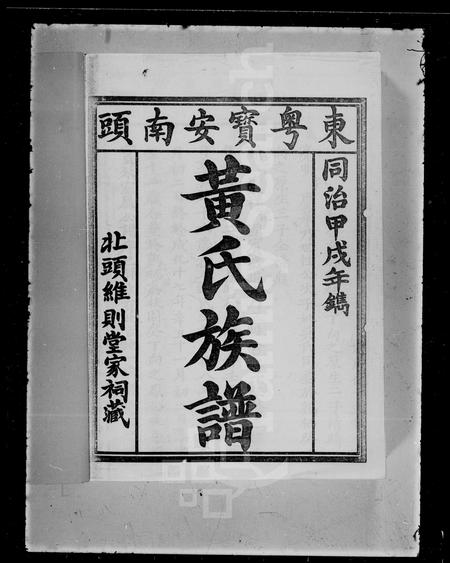 東粵寶安南頭
同治甲戌年鐫
黃氏族譜
北頭維則堂家祠藏